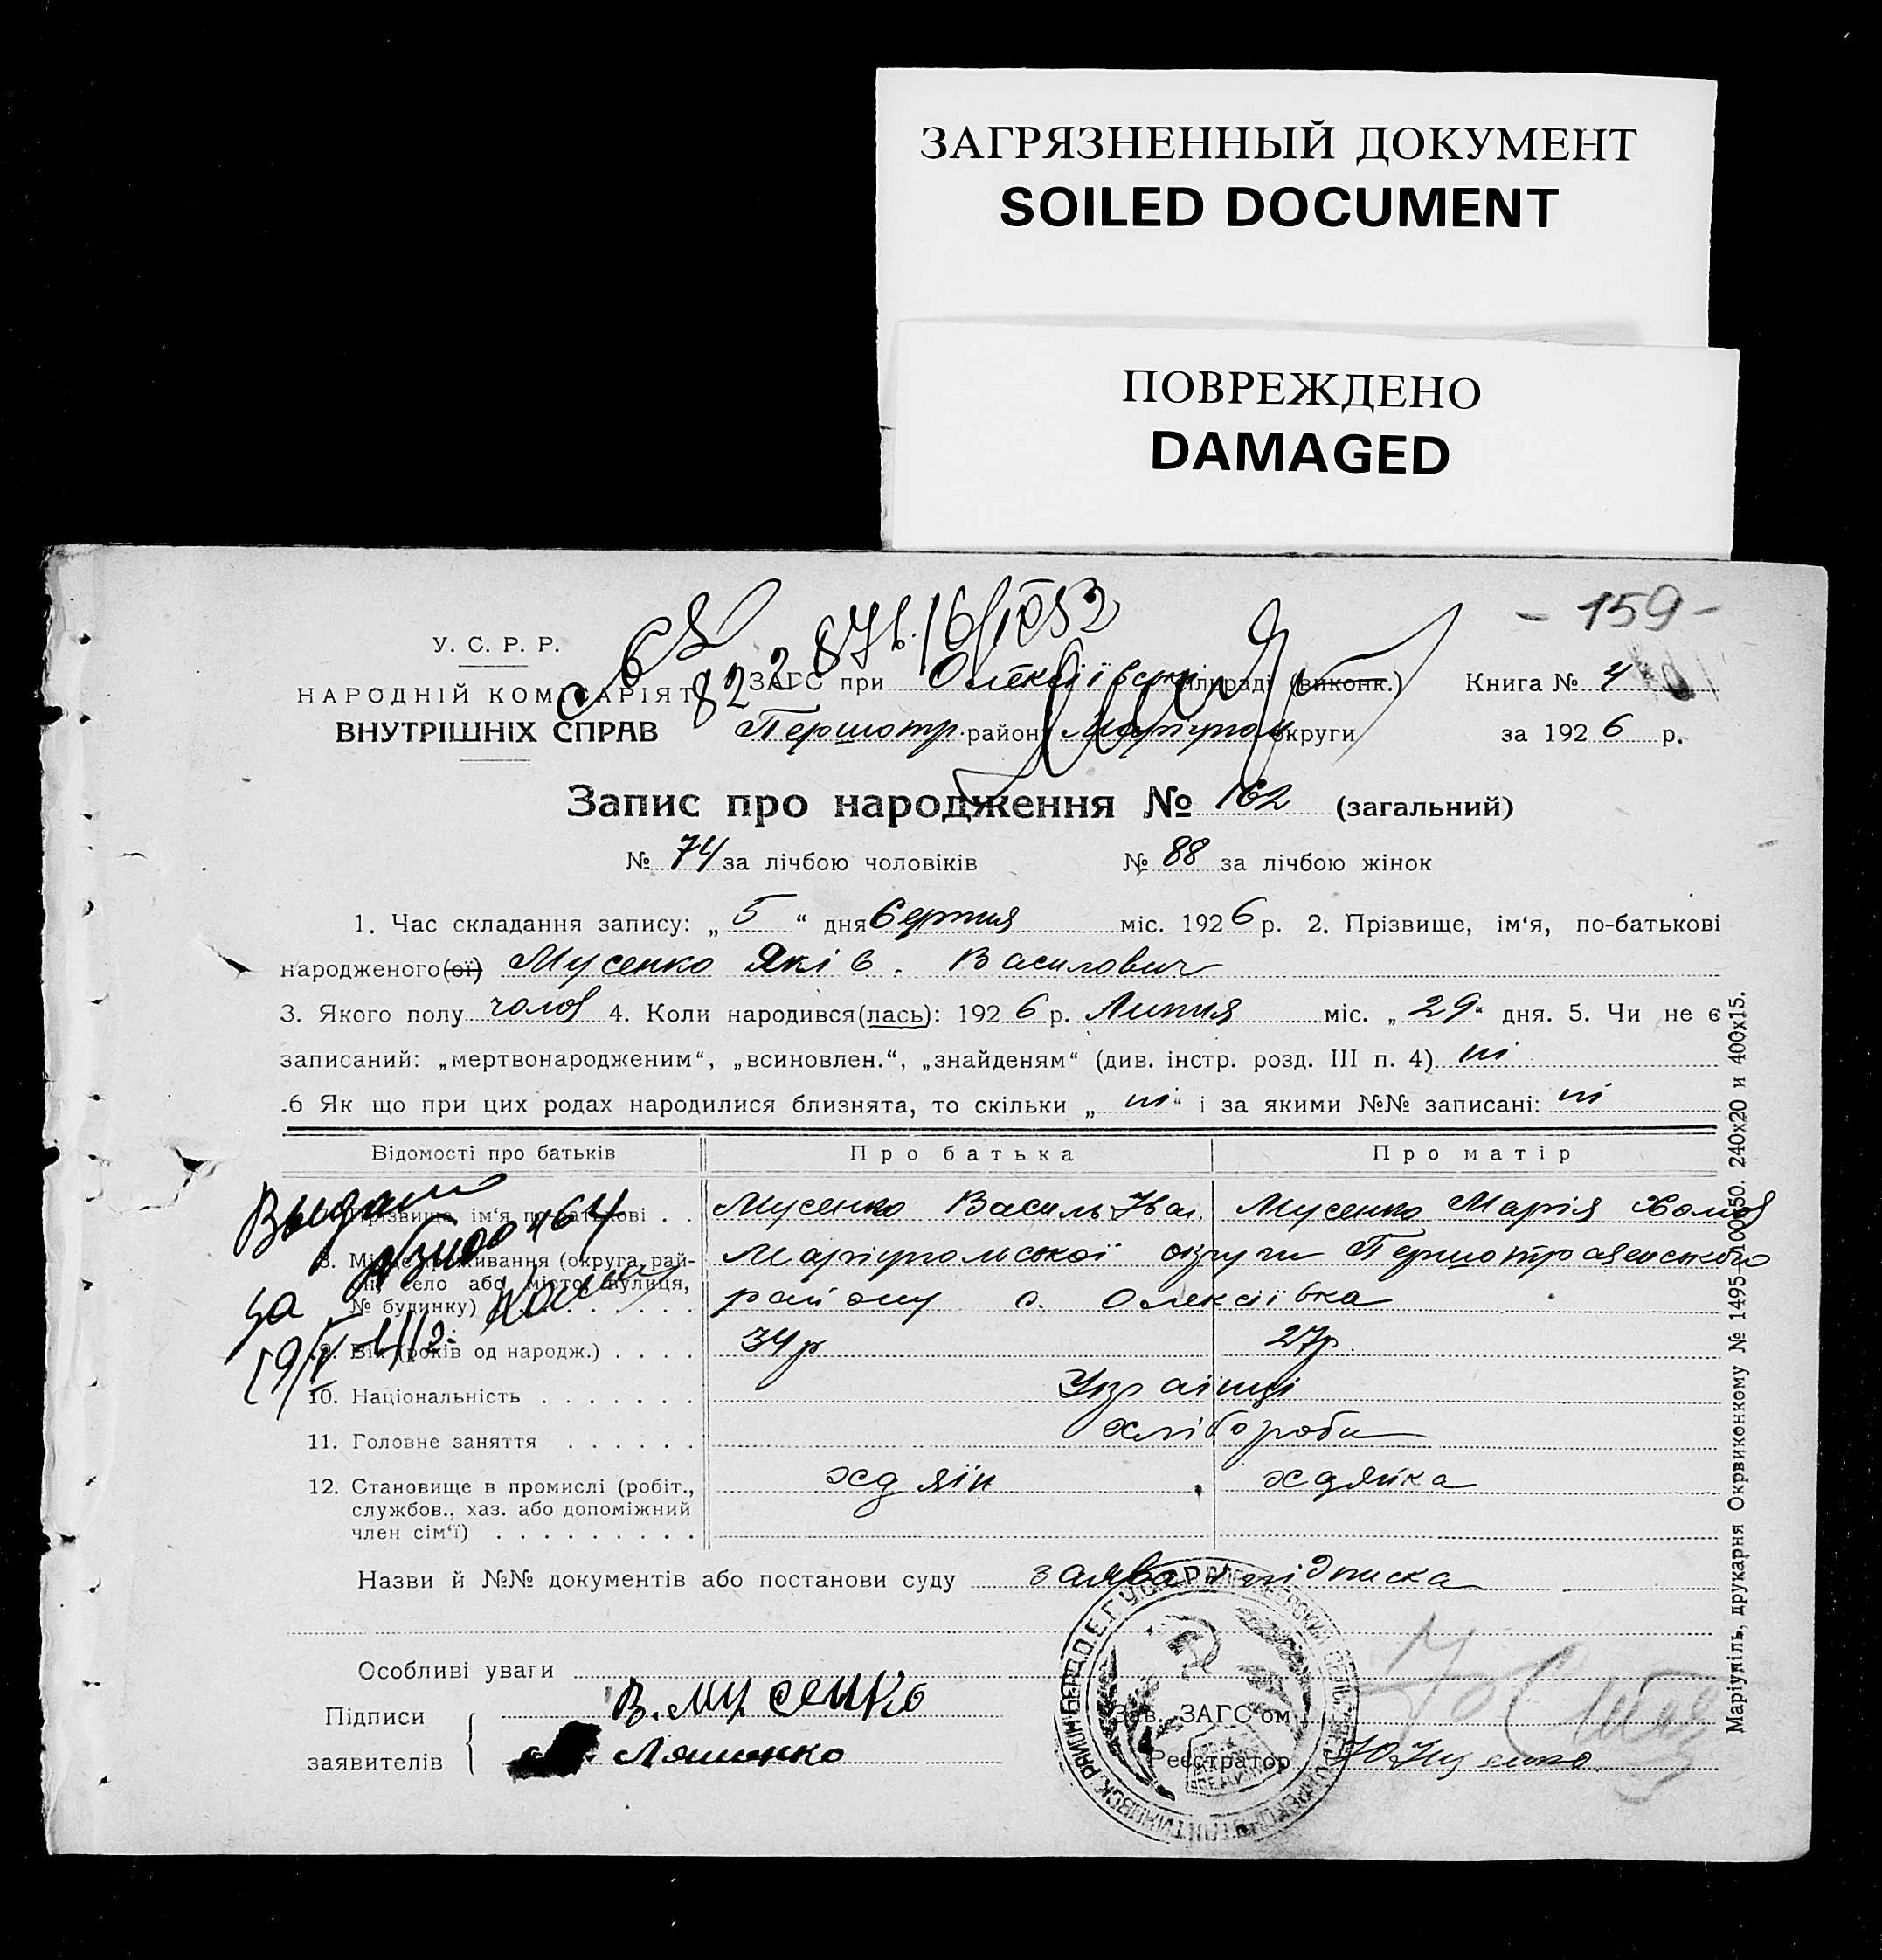 ЗАГРЯЗНЕННЫЙ ДОКУМЕНТ
SOILED DOCUMENT
ПОВРЕЖДЕНО
DAMAGED
- 159 -
У. С. Р. Р.
НАРОДНІЙ КОМІСАРІЯТ
ВНУТРІШНІХ СПРАВ
ЗАГС при Олексіївськ. сільраді (виконк.)
Першотр. району Маріупол округи
Книга № 4
за 1926 р.
Запис про народження № 162 (загальний)
№ 74 за лічбою чоловіків № 88 за лічбою жінок
1. Час складання запису: „ 5 “ дня Серпня міс. 1926 р. 2. Прізвище, ім‘я, по-батькові
народженого(ої) Мусенко Яків. Василович
3. Якого полу чолов 4. Коли народився(лась): 1926 р. Липня міс. „ 29 “ дня. 5. Чи не є
записаний: „мертвонародженим“, „всиновлен.“, „знайденям“ (див. інстр. розд. III п. 4) ні
.6 Як що при цих родах народилися близнята, то скільки „ ні “ і за якими №№ записані: ні
Відомості про батьків Про батька Про матір
Прізвище, ім‘я по батькові . . Мусенко Василь Ів. Мусенко Марія
8. Місце проживання (округа, рай- Маріупольської округи Першотравенського
он, село або місто, вулиця,
№ будинку) району с. Олексіївка
9. Вік (років од народж.) . . . . 34 р 27 р.
10. Національність . . . . . . . Українці
11. Головне заняття . . . . . . хлібороби
12. Становище в промислі (робіт., хдяїн хдяйка
службов., хаз. або допоміжний
член сім‘ї) . . . . . . . . .
Назви й №№ документів або постанови суду заява підписка
Особливі уваги
Підписи
заявителів
В. Мусенко
Ляшенко
Зав. ЗАГС‘ом
Реєстратор
Маріупіль, друкарня Окрвиконкому № 1495—10050. 240х20 и 400х15.